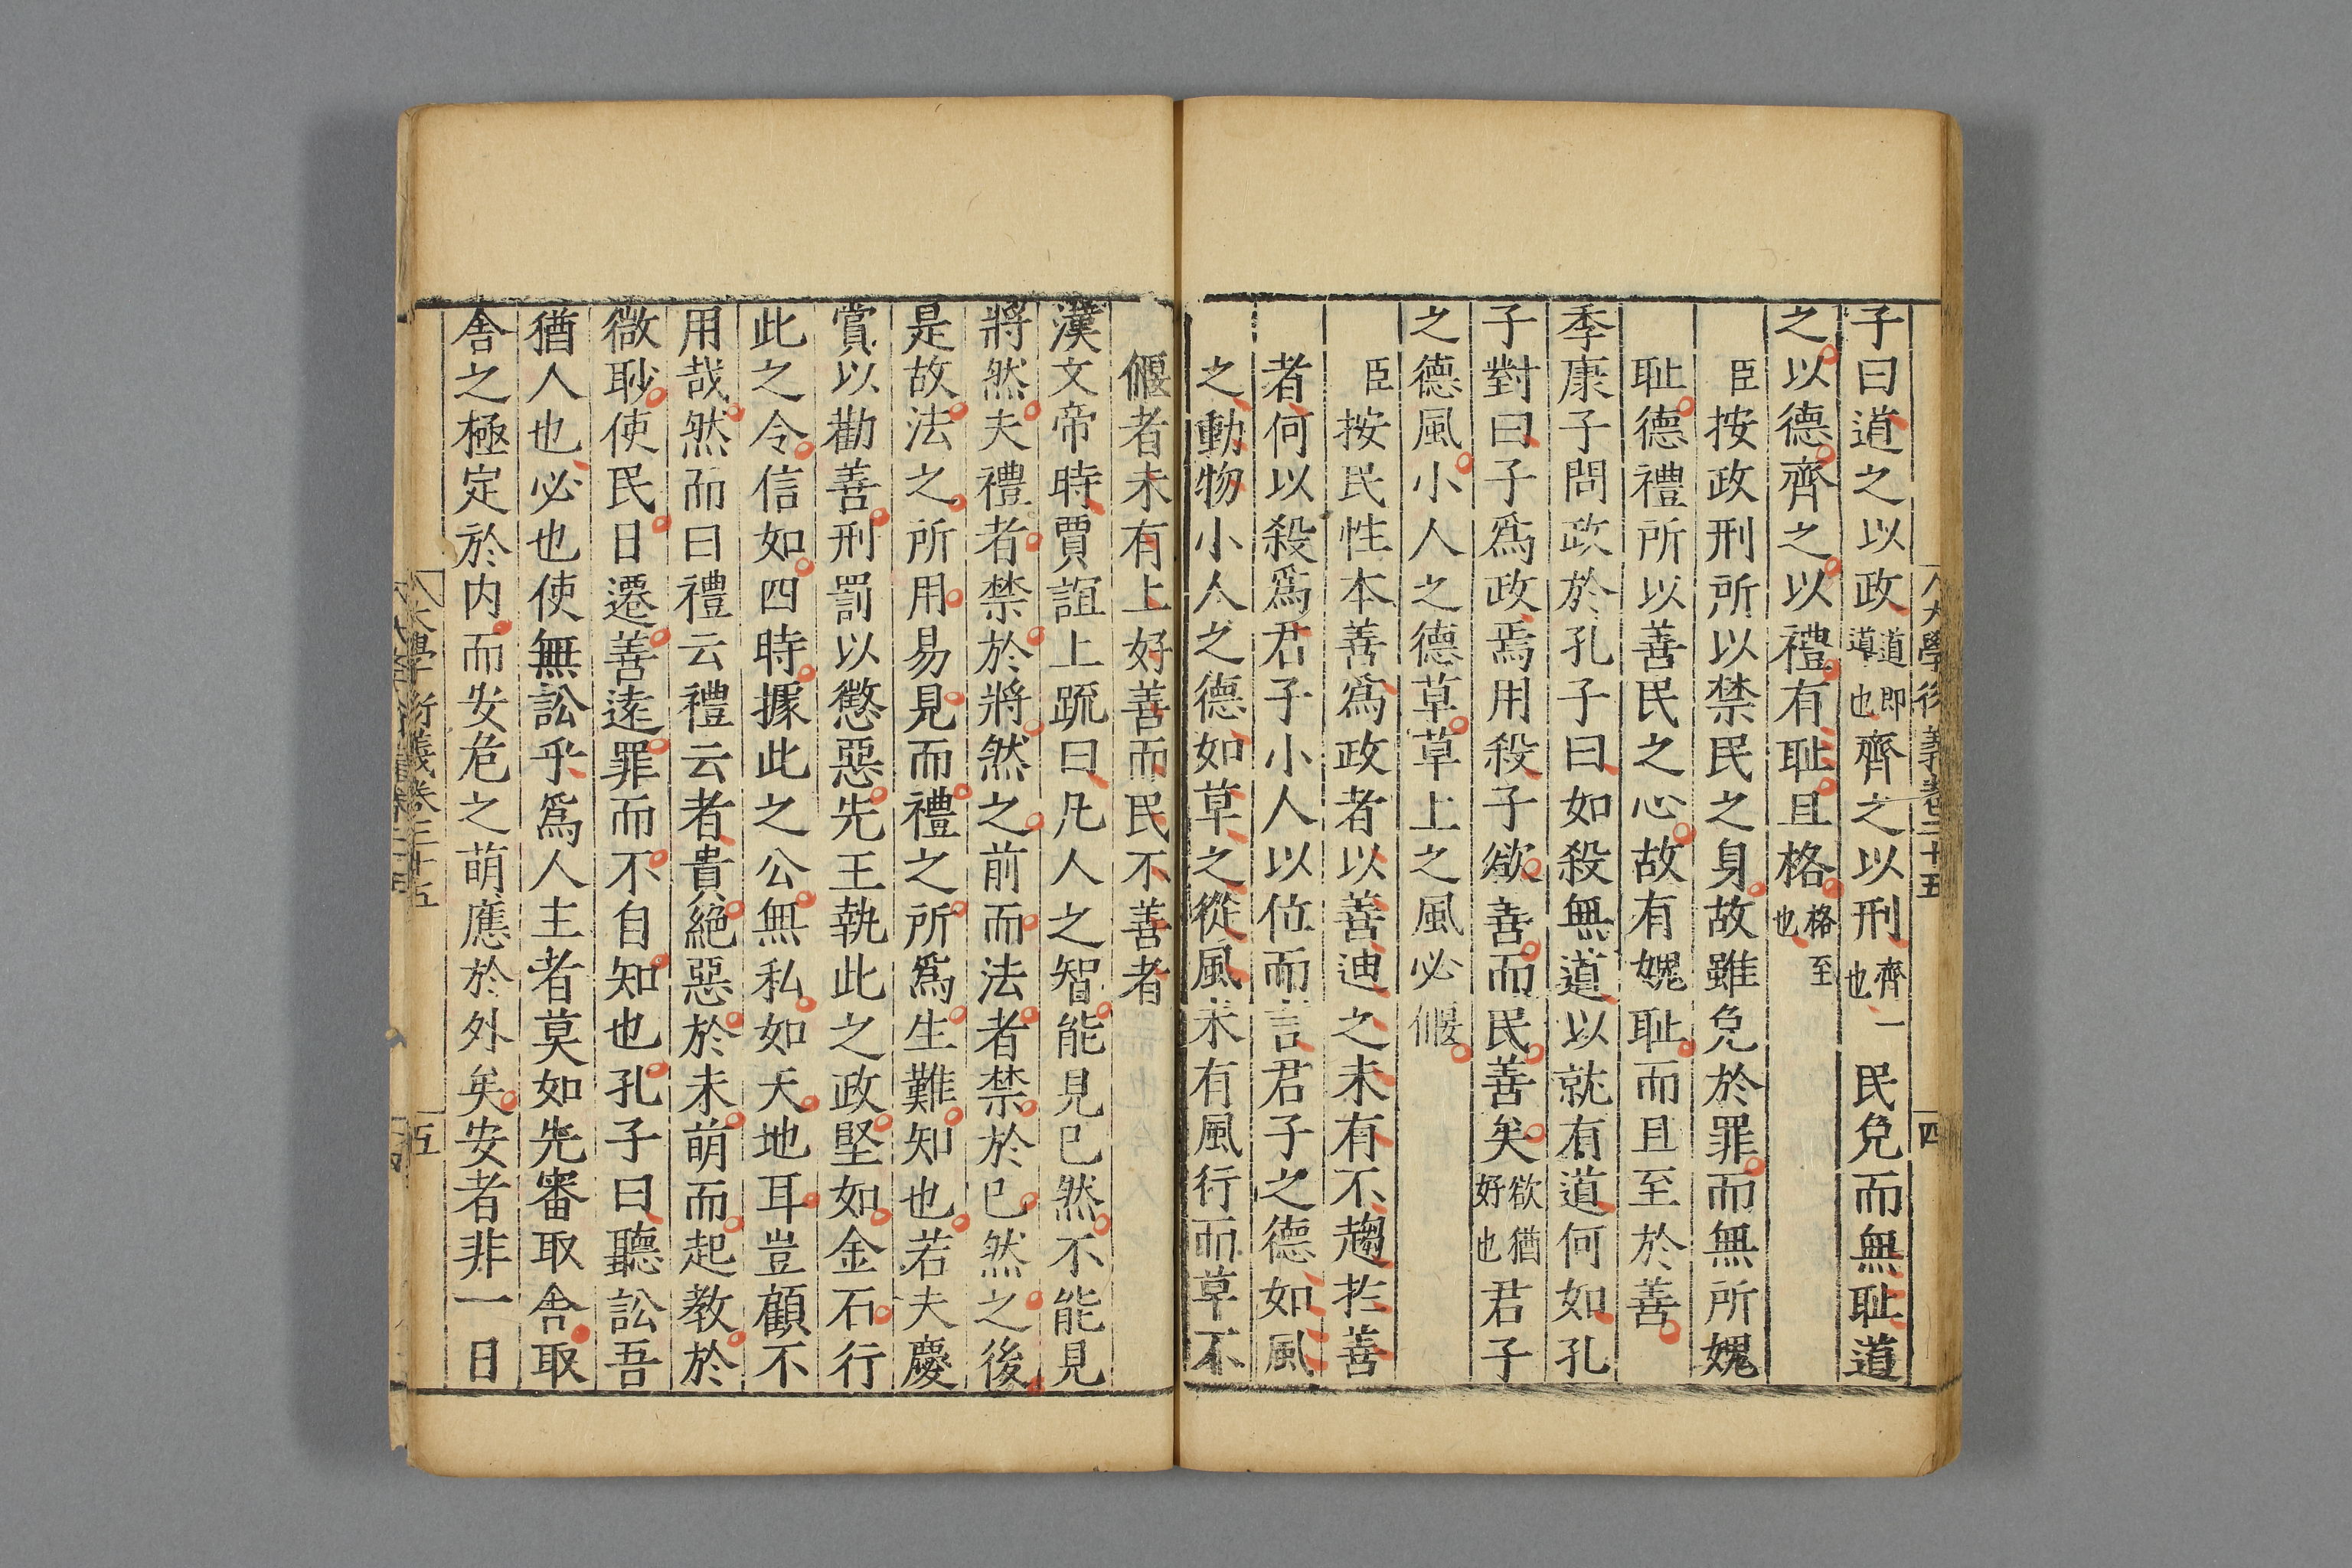 子曰道之以政道即導也齊之以刑齊一也民免而無耻道
之以德齊之以禮有耻且格格至也
臣按政刑所以禁民之身故雖免於罪而無所媿
耻德禮所以善民之心故有媿耻而且至於善
季康子問政於孔子曰如殺無道以就有道何如孔
子對曰子爲政焉用殺子欲善而民善矣欲猶好也君子
之德風小人之德草草上之風必偃
臣按民性本善爲政者以善迪之未有不趨於善
者何以殺爲君子小人以位而言君子之德如風
之動物小人之德如草之從風未有風行而草不
偃者未有上好善而民不善者
漢文帝時賈誼上疏曰凡人之智能見已然不能見
將然夫禮者禁於將然之前而法者禁於已然之後
是故法之所用易見而禮之所爲生難知也若夫慶
賞以勸善刑罰以懲惡先王執此之政堅如金石行
此之令信如四時據此之公無私如天地耳豈顧不
用哉然而曰禮云禮云者貴絕惡於未萌而起教於
微眇使民日遷善遠罪而不自知也孔子曰聽訟吾
猶人也必也使無訟乎爲人主者莫如先審取舍取
舍之極定於内而安危之萌應於外矣安者非一日
大學衍義卷二十五
四
大學衍義卷二十五
五